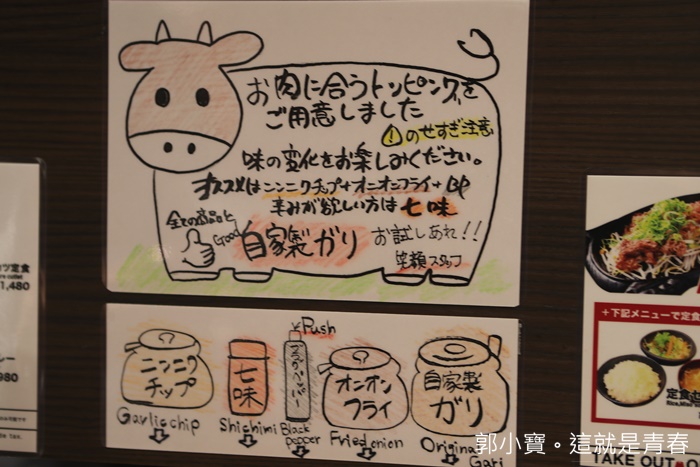 お肉に合うトッピングを
ご用意しました
のせすぎ注意
味の変化をお楽しみください。
オススメはニンニクチップ+オニオンフライ+BP
辛みが欲しい方は七味
全ての商品と
Good
自家製ガリ
お試しあれ!!
笑顔スタッフ
Push
ニンニク
チップ
七味
ブラックペッパー
オニオン
フライ
自家製
ガリ
Garlic chip
Shichimi
Black
pepper
Fried onion
Original
Gari
定食
1,480
980
+下記メニューで定食
定食
TAKE OUT
郭小寶。這就是青春